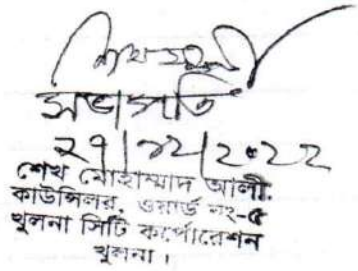 সভাপতি
২৭/১২/২০২২
শেখ মোহাম্মাদ আলী.
কাউন্সিলর, ওয়ার্ড নং-৫
খুলনা সিটি কর্পোরেশন
খুলনা।